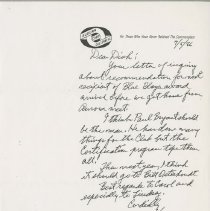 For Those Who Have Never Believed The Commonplace
9/5/86
Dear Dick:
Your letter of inquiry
about recommendation for next
recipient of Blue Blaze award
arrived before we got home from
I think Paul Bryant should
be the man. He has done many
things for the Club but the
Certification program tops them
all!
Then next year, I think
it should go to Bill
Best regards to Carol and
especially to
Cordially